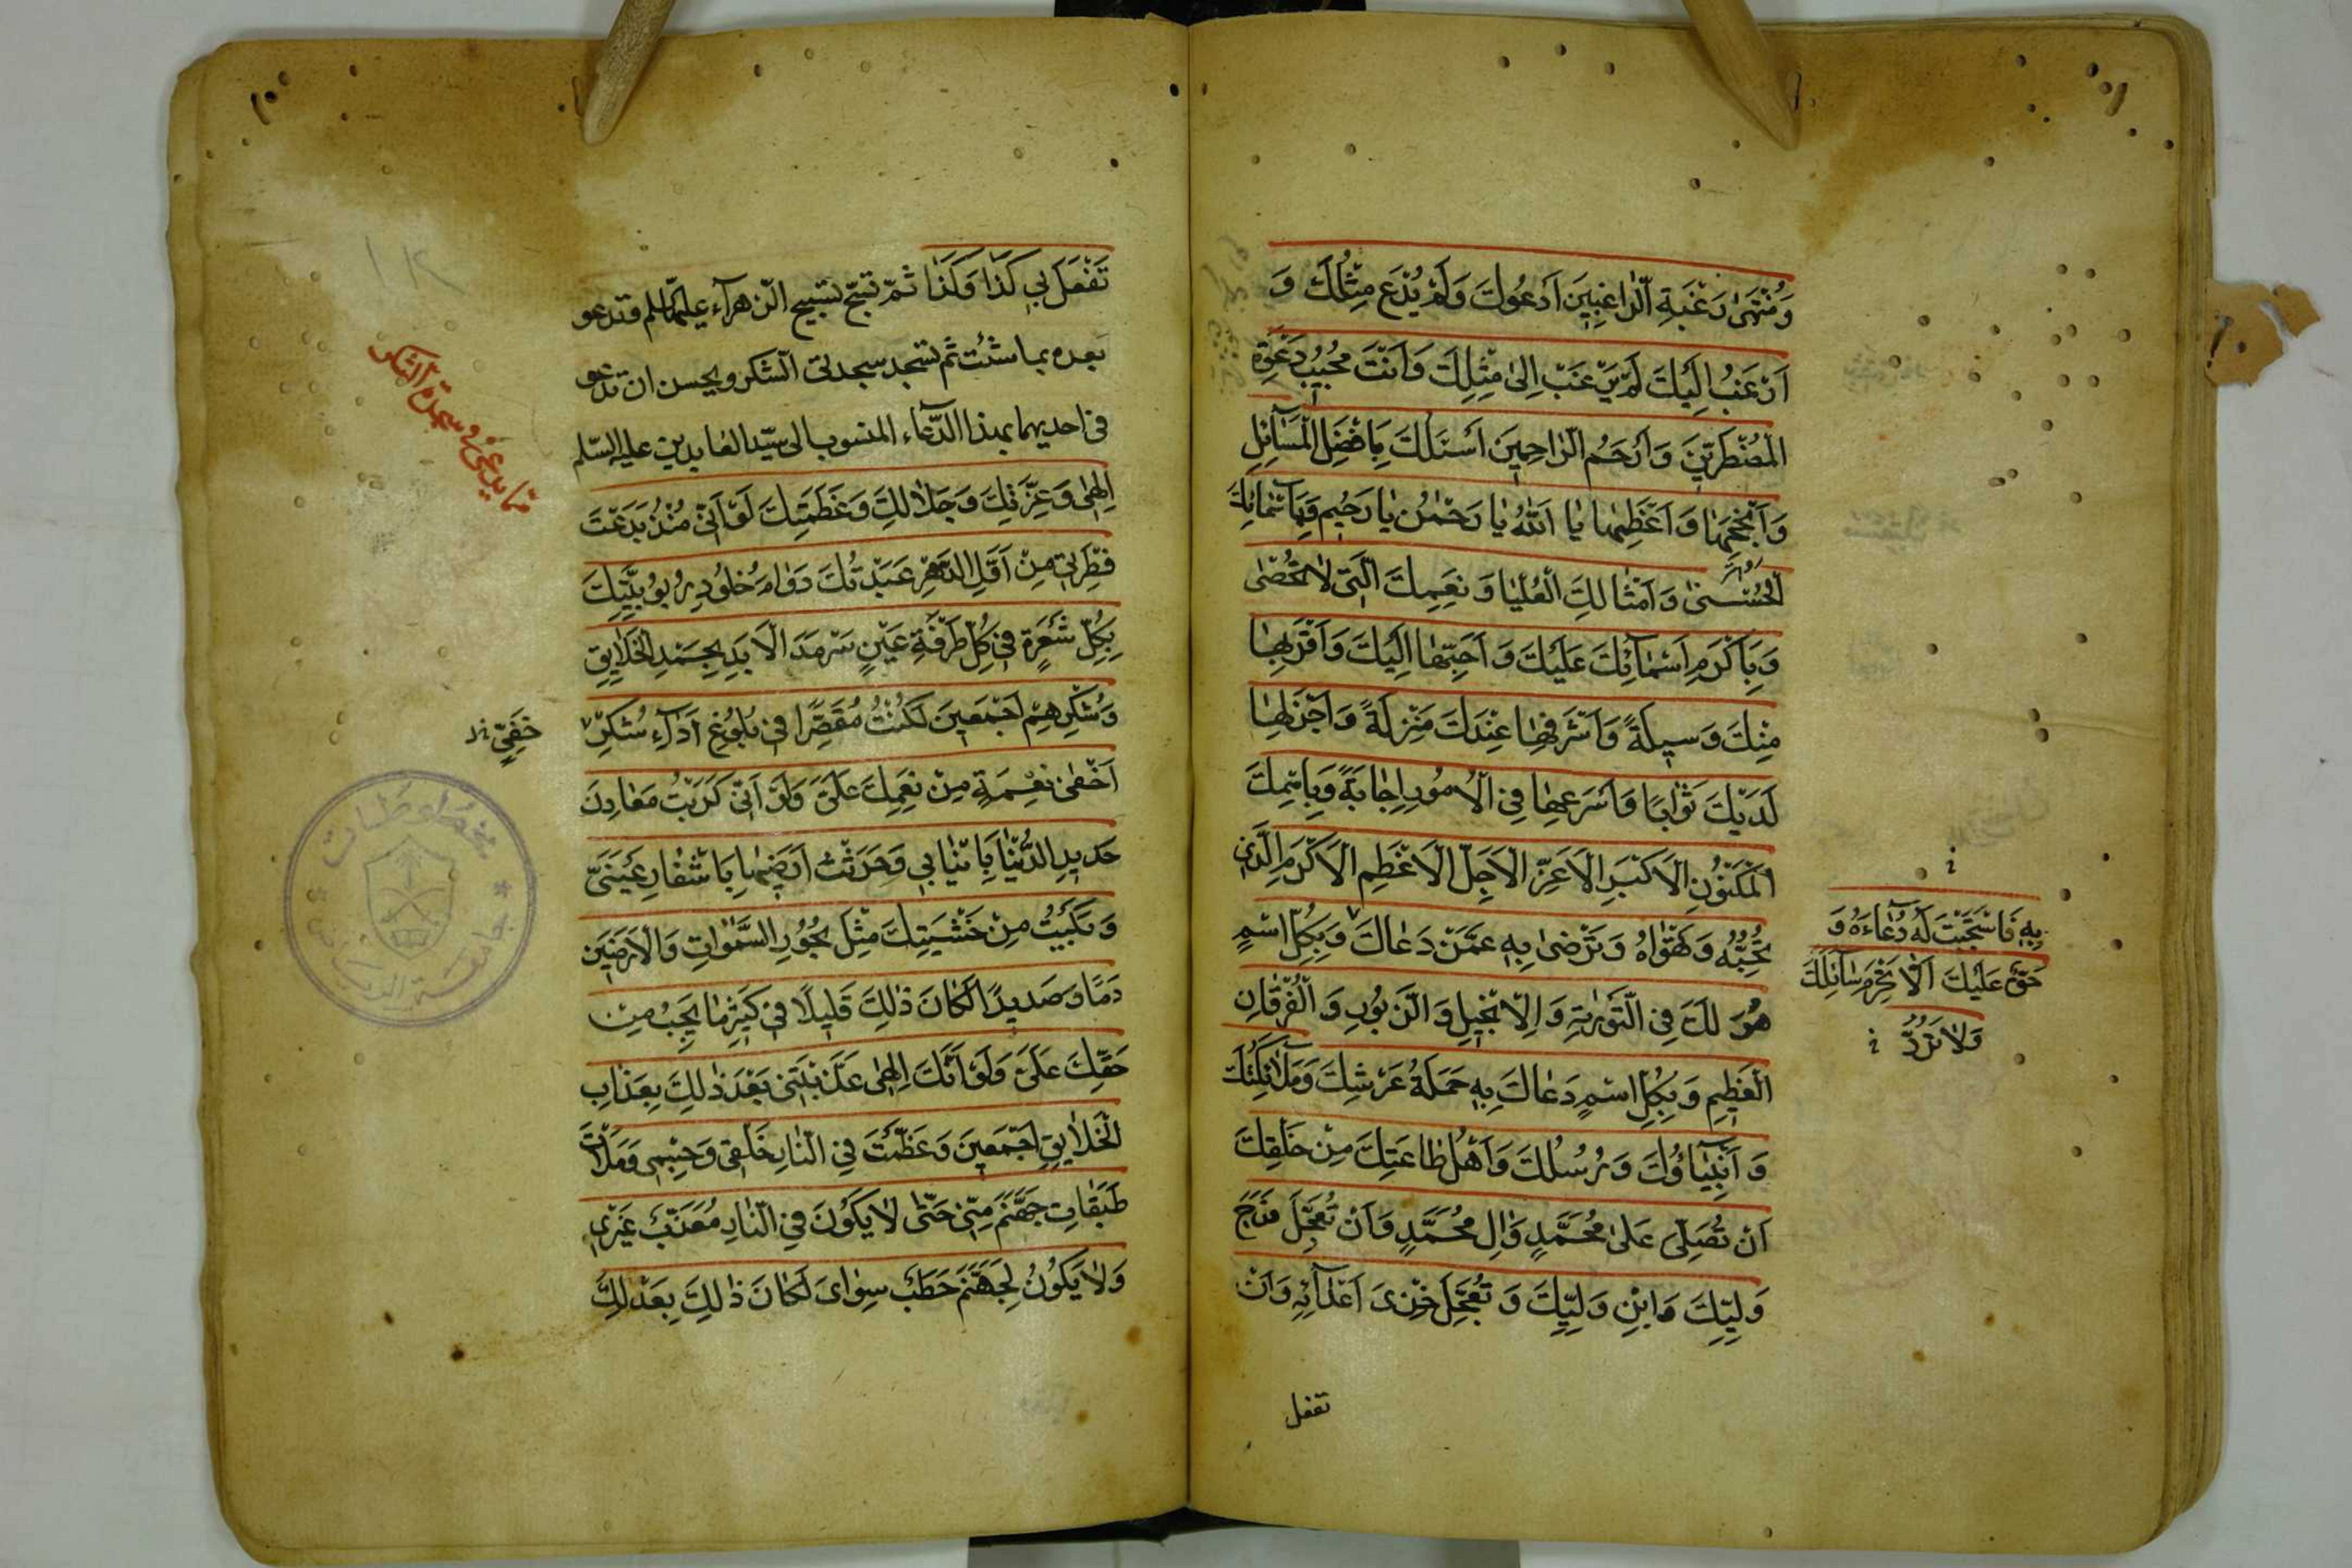 وَمُنْتَهىٰ رَغْبَةِ الرّٰاغِبِينَ اَدْعُوكَ وَلَمْ يُدْعَ مِثْلُكَ وَ
اَرْغَبُ اِلَيْكَ لَمْ يُرْغَبْ اِلىٰ مِثْلِكَ وَاَنْتَ مُجِيبُ دَعْوَةِ
الْمُضْطَرِّينَ وَاَرْحَمُ الرّٰاحِمِينَ اَسْئَلُكَ بِاَفْضَلِ الْمَسٰائِلِ
وَاَنْجَحِهٰا وَاَعْظَمِهٰا يٰا اَللّٰهُ يٰا رَحْمٰنُ يٰا رَحِيمُ وَبِاَسْمٰائِكَ
الْحُسْنىٰ وَاَمْثٰالِكَ الْعُلْيٰا وَنِعَمِكَ الَّتِي لاٰ تُحْصىٰ
وَبِاَكْرَمِ اَسْمٰآئِكَ عَلَيْكَ وَاَحَبِّهٰا اِلَيْكَ وَاَقْرَبِهٰا
مِنْكَ وَسِيلَةً وَاَشْرَفِهٰا عِنْدَكَ مَنْزِلَةً وَاَجْزَلِهٰا
لَدَيْكَ ثَوٰابًا وَاَسْرَعِهٰا فِي الْاُمُورِ اِجٰابَةً وَبِاسْمِكَ
الْمَكْنُونِ الْاَكْبَرِ الْاَعَزِّ الْاَجَلِّ الْاَعْظَمِ الْاَكْرَمِ الَّذِي
تُحِبُّهُ وَتَهْوٰاهُ وَتَرْضىٰ بِهِ عَمَّنْ دَعٰاكَ وَبِكُلِّ اسْمٍ
بِهِ فَاسْتَجَبْتَ لَهُ دُعٰاءَهُ وَ
حَقٌّ عَلَيْكَ اَلاّٰ تَحْرِمَ سٰائِلَكَ
وَلاٰ تَرُدَّ
هُوَ لَكَ فِي التَّوْرٰيةِ وَالْاِنْجِيلِ وَالزَّبُورِ وَالْفُرْقٰانِ
الْعَظِيمِ وَبِكُلِّ اسْمٍ دَعٰاكَ بِهِ حَمَلَةُ عَرْشِكَ وَمَلاٰئِكَتُكَ
وَاَنْبِيٰآؤُكَ وَرُسُلُكَ وَاَهْلُ طٰاعَتِكَ مِنْ خَلْقِكَ
اَنْ تُصَلِّيَ عَلىٰ مُحَمَّدٍ وَاٰلِ مُحَمَّدٍ وَاَنْ تُعَجِّلَ فَرَجَ
وَلِيِّكَ وَابْنِ وَلِيِّكَ وَتُعَجِّلَ خِزْيَ اَعْدٰآئِهِ وَاَنْ
تفعل
تَفْعَلَ بِي كَذٰا وَكَذٰا ثمّ تسبّح تسبيح الزهرآء عليها السلم وتدعو
بعده بما شئت ثم تسجد سجدتى الشكر ويحسن ان تدعو
فى احديهما بهذا الدّعآء المنسوب الى سيّد العابدين عليه السّلم
ما يدعى فى سجدة الشكر
اِلٰهِي وَعِزَّتِكَ وَجَلاٰلِكَ وَعَظَمَتِكَ لَوْ اَنِّي مُنْذُ بَدَعْتَ
فِطْرَتِي مِنْ اَوَّلِ الدَّهْرِ عَبَدْتُكَ دَوٰامَ خُلُودِ رُبُوبِيَّتِكَ
بِكُلِّ شَعْرَةٍ فِي كُلِّ طَرْفَةِ عَيْنٍ سَرْمَدَ الْاَبَدِ بِحَمْدِ الْخَلاٰيِقِ
وَشُكْرِهِمْ اَجْمَعِينَ لَكُنْتُ مُقَصِّرًا فِي بُلُوغِ اَدٰآءِ شُكْرِ
خَفِيِّ
اَخْفىٰ نِعْمَةٍ مِنْ نِعَمِكَ عَلَيَّ وَلَوْ اَنِّي كَرَبْتُ مَعٰادِنَ
حَدِيدِ الدُّنْيٰا بِاَنْيٰابِي وَحَرَثْتُ اَرَضِيهٰا بِاَشْفٰارِ عَيْنَيَّ
وَبَكَيْتُ مِنْ خَشْيَتِكَ مِثْلَ بُحُورِ السَّمٰوٰاتِ وَالْاَرَضِينَ
دَمًا وَصَدِيدًا لَكٰانَ ذٰلِكَ قَلِيلًا فِي كَثِيرِ مٰا يَجِبُ مِنْ
حَقِّكَ عَلَيَّ وَلَوْ اَنَّكَ اِلٰهِي عَذَّبْتَنِي بَعْدَ ذٰلِكَ بِعَذٰابِ
الْخَلاٰيِقِ اَجْمَعِينَ وَعَظَّمْتَ فِي النّٰارِ خَلْقِي وَجِسْمِي وَمَلَأْتَ
طَبَقٰاتِ جَهَنَّمَ مِنِّي حَتّٰى لاٰ يَكُونَ فِي النّٰارِ مُعَذَّبٌ غَيْرِي
وَلاٰ يَكُونُ لِجَهَنَّمَ حَطَبٌ سِوٰايَ لَكٰانَ ذٰلِكَ بِعَدْلِكَ
مخطوطات
جامعة الرياض